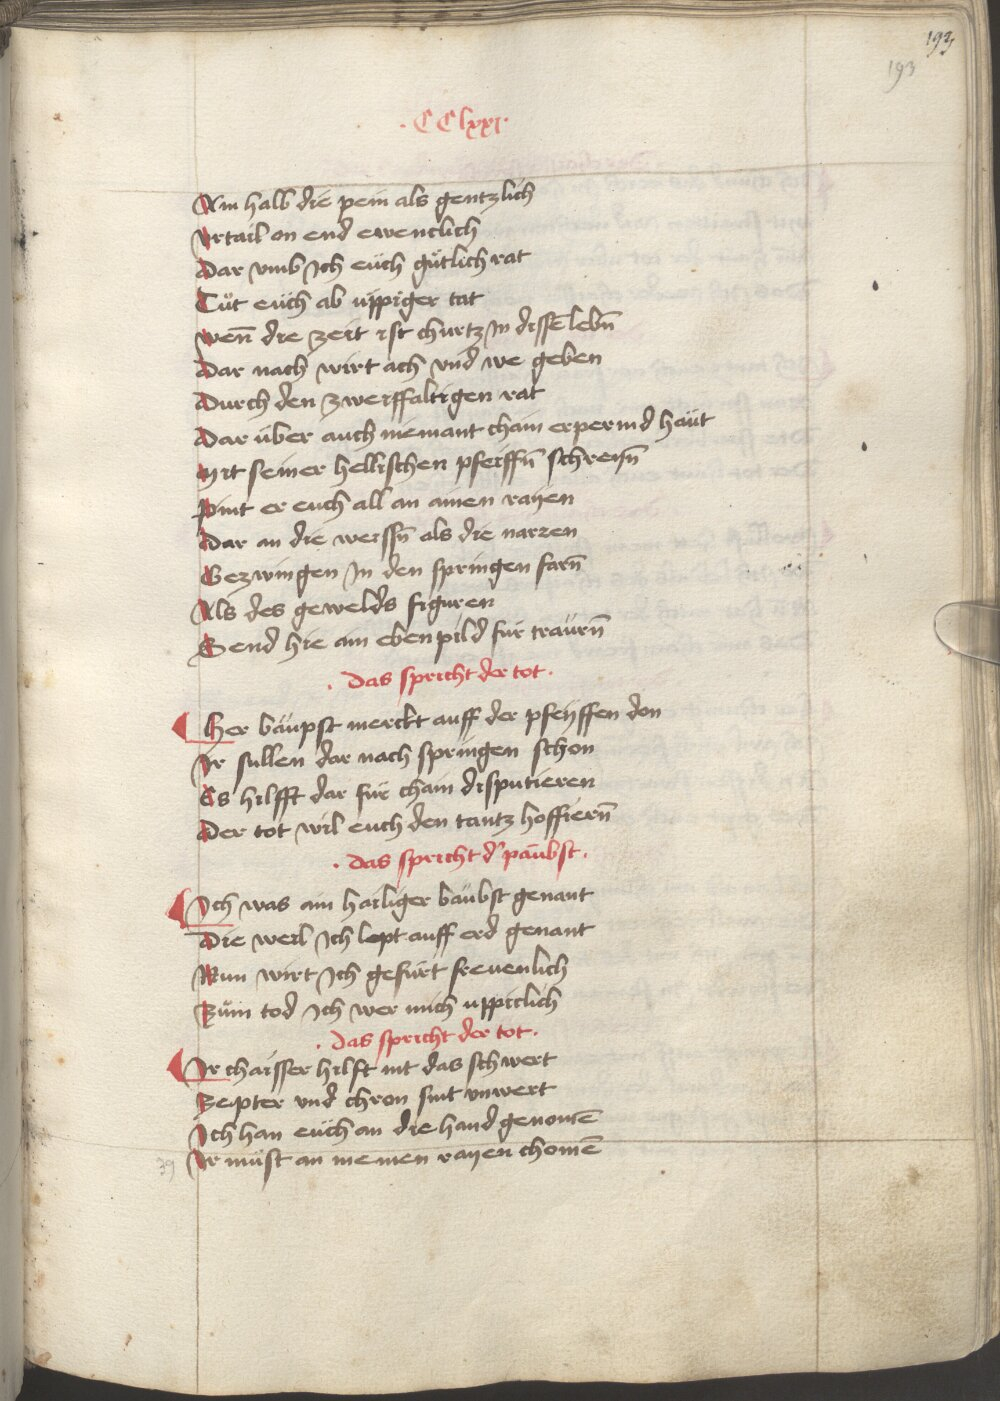 193
193
·CClxxi·
Ain halb die pein als gentzlich
Vrtail on end ewenclich
Dar vmb Ich eüch gütlich rat
Tüt eüch ab üppiger tat
wen̄ die zeit ist churtz In dissē lebn̄
Dar nach wirt ach vnd we geben
Durch den zweiffaltigen rat
Dar über auch niemant chain erpermd haüt
Mit seiner hellischen pfeiffn̄ schreyn̄
Pint er euch all an ainen rayen
Dar an die weissn̄ als die narren
Gezwingen In den springen farn̄
Als des gewelds figuren
Send hie ain ebenpild für traürn̄
·Das spricht der tot·
Her bäupst merckt auff der pfeyffen don
Ir sullen dar nach springen schon
Es hilfft dar für chain disputieren
Der tot wil euch den tantz hoffiern̄
·Das spricht d' paübst·
Ich was ain hailiger baübst genant
Die weil Ich lept auff erd genant
Nun wirt Ich gefürt freuenlich
Zum tod Ich wer mich üppiclich
·Das spricht der tot·
Ir chaisser hilft nit das schwert
Zepter vnd chron sint vnwert
Ich han eüch an die hand genomē
Ir müst an meinen rayen chomē
39